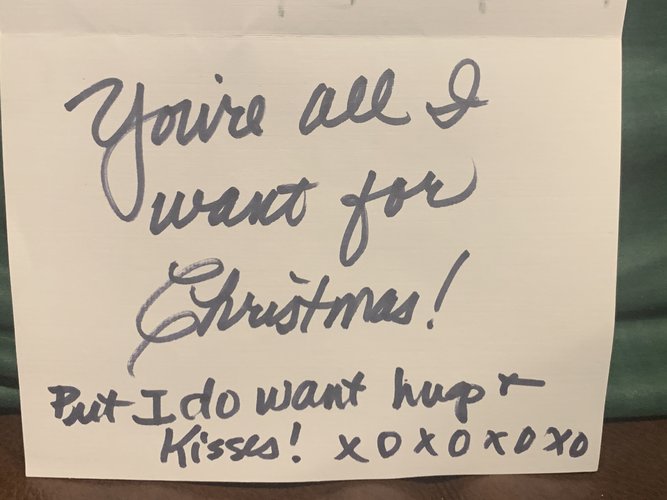 You're all I
want for
Christmas!
But I do want hugs +
Kisses! x o x o x o x o